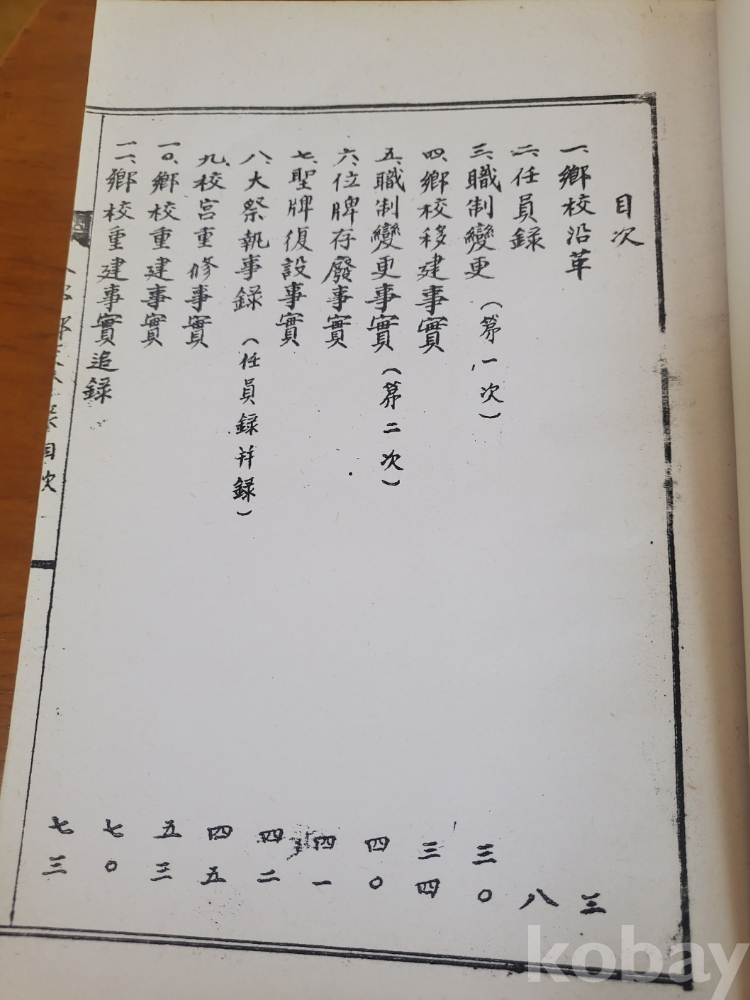 目次
一、鄕校沿革 三
二、任員録 八
三、職制變更(第一次) 三〇
四、鄕校移建事實 三四
五、職制變更事實(第二次) 四〇
六、位牌存廢事實 四一
七、聖牌復設事實 四二
八、大祭執事録(任員録幷録) 四五
九、校宮重修事實 五三
一〇、鄕校重建事實 七〇
一一、鄕校重建事實追録 七三
目次
kobay